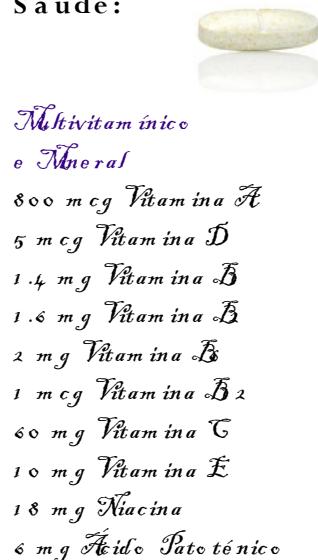 Saúde:
Multivitamínico
e Mineral
800 mcg Vitamina A
5 mcg Vitamina D
1.4 mg Vitamina B1
1.6 mg Vitamina B2
2 mg Vitamina B6
1 mcg Vitamina B12
60 mg Vitamina C
10 mg Vitamina E
18 mg Niacina
6 mg Ácido Patoténico